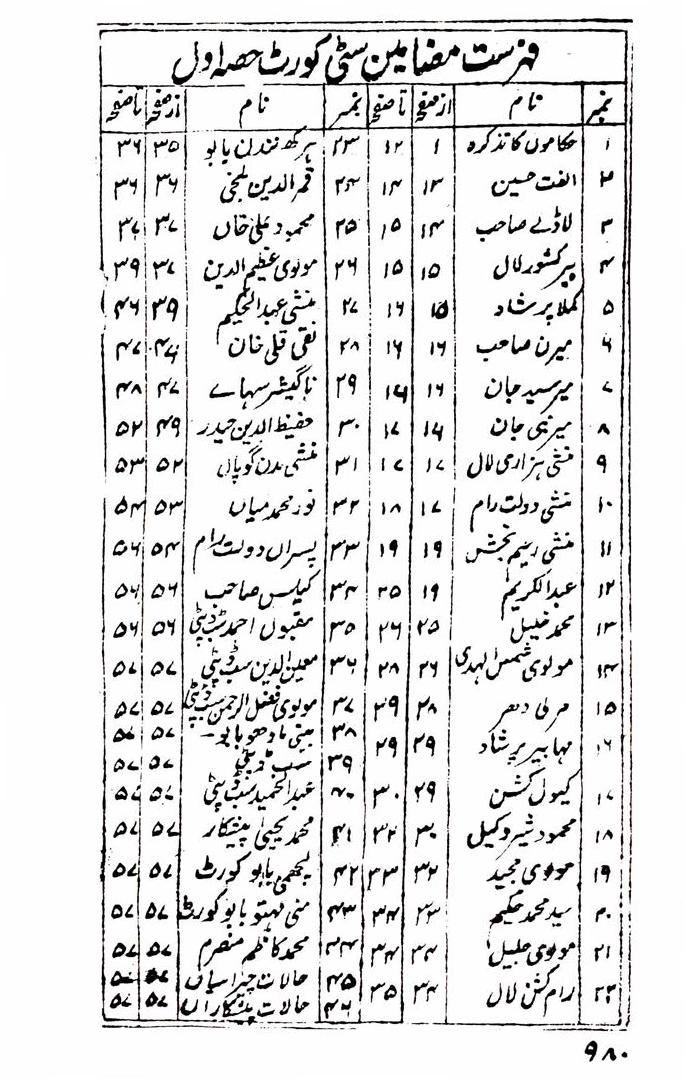 فہرست مضامین سٹی کورٹ حصہ اول
نمبر نام از صفحہ تا صفحہ نمبر نام از صفحہ تا صفحہ
۱ حکاموں کا تذکرہ ۱ ۱۲ ۲۳ ہرکھ نندن بابو ۳۵ ۳۶
۲ الفت حسین ۱۳ ۱۴ ۲۴ قمر الدین بلخی ۳۶ ۳۶
۳ لاڈلے صاحب ۱۴ ۱۵ ۲۵ محمود علی خاں ۳۷ ۳۷
۴ بپر کشور لال ۱۵ ۱۵ ۲۶ مولوی عظیم الدین ۳۷ ۳۹
۵ کملا پرشاد ۱۵ ۱۶ ۲۷ منشی عبد الحکیم ۳۹ ۴۶
۶ میرن صاحب ۱۶ ۱۶ ۲۸ نقی قلی خان ۴۷ ۴۷
۷ میر سید جان ۱۶ ۱۶ ۲۹ ناگیشر سہاے ۴۷ ۴۸
۸ میر نبی جان ۱۶ ۱۷ ۳۰ حفیظ الدین حیدر ۴۹ ۵۲
۹ منشی ہزاری لال ۱۷ ۱۷ ۳۱ منشی مدن گوپال ۵۲ ۵۳
۱۰ منشی دولت رام ۱۷ ۱۸ ۳۲ نور محمد میاں ۵۳ ۵۴
۱۱ منشی رسیم بخش ۱۹ ۱۹ ۳۳ پسران دولت رام ۵۴ ۵۶
۱۲ عبد الکریم ۱۹ ۲۵ ۳۴ کیلس صاحب ۵۶ ۵۶
۱۳ محمد خلیل ۲۵ ۲۶ ۳۵ مقبول احمد سب ڈپٹی ۵۶ ۵۶
۱۴ مولوی شمس الہدی ۲۶ ۲۸ ۳۶ معین الدین سب ڈپٹی ۵۷ ۵۷
۱۵ مرلی دھر ۲۸ ۲۹ ۳۷ مولوی فضل الرحمن سب ڈپٹی ۵۷ ۵۷
۱۶ مہابیر پرشاد ۲۹ ۲۹ ۳۸ بینی مادھو بابو - ۵۷ ۵۷
۳۹ سب ڈپٹی ۵۷ ۵۷
۱۷ کیول کشن ۲۹ ۳۰ ۴۰ عبد الحمید سب ڈپٹی ۵۷ ۵۷
۱۸ محمود شیر وکیل ۳۰ ۳۲ ۴۱ محمد یحییٰ پیشکار ۵۷ ۵۷
۱۹ مولوی مجید ۳۲ ۳۳ ۴۲ لچھمی بابو کورٹ ۵۷ ۵۷
۲۰ سید محمد حکیم ۳۳ ۳۴ ۴۳ منی مہتو بابو کورٹ ۵۷ ۵۷
۲۱ مولوی جلیل ۳۴ ۳۴ ۴۴ محمد کاظم منصرم ۵۷ ۵۷
۲۲ رام کشن لال ۳۴ ۳۵ ۴۵ حالات چپراسیاں ۵۷
۴۶ حالات پیشکاراں ۵۷ ۵۷
۹۸۰